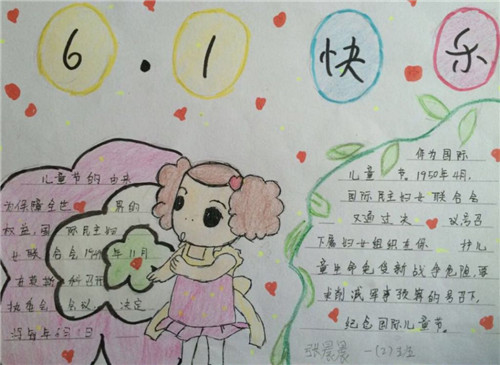 6.1快乐
儿童节的由来
为保障全世 男的
权益,国际民主妇
女联合会1949年11月
在莫斯科召开
执委会会议,决定
每年6月1日
作为国际
儿童节。1950年4月,
国际民主妇女联合会
又通过决 议,号召
下属妇女组织支保 护儿
童生命危货新战争危险,要
求削减军事预算的号召下,
纪念国际儿童节。
张晨晨 一(2)主主